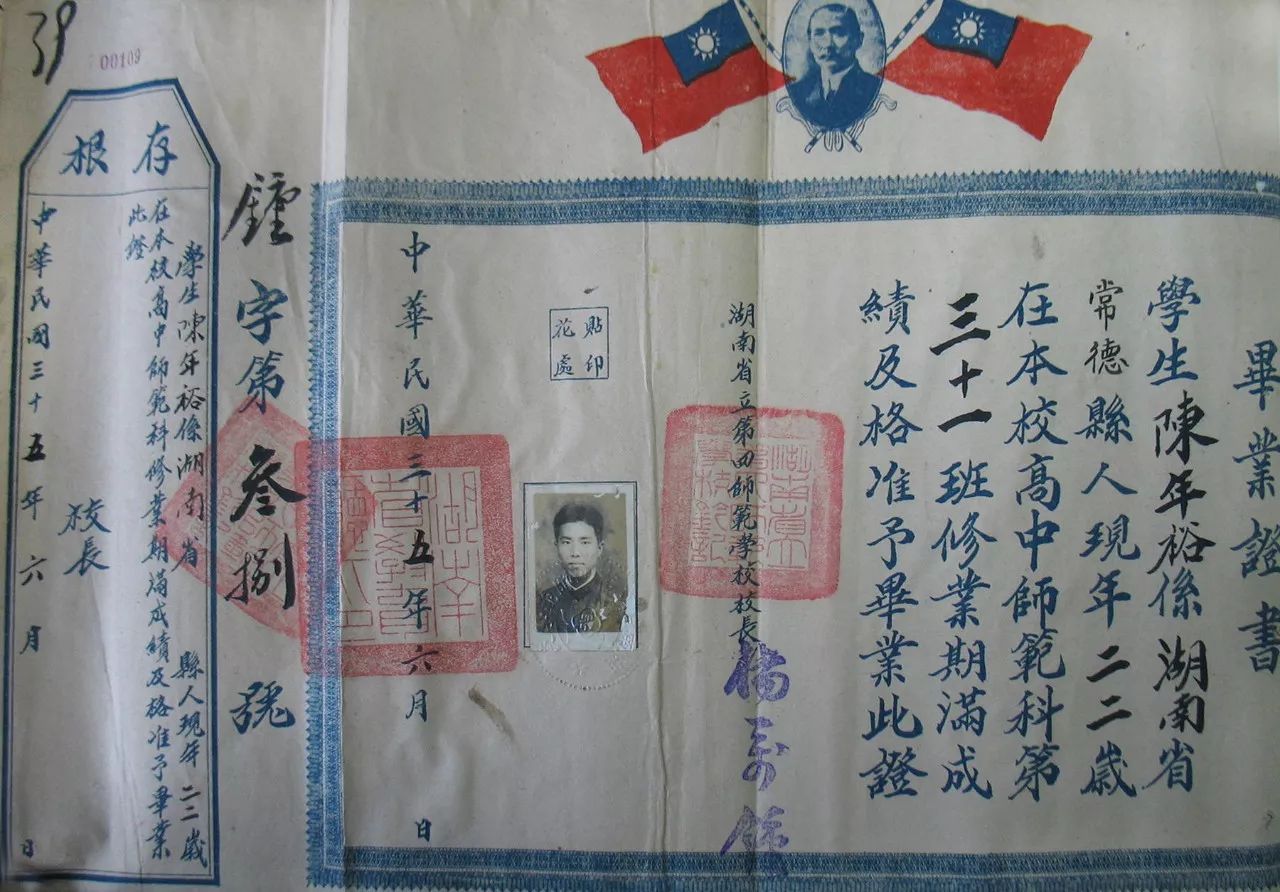 畢業證書
學生陳年裕係湖南省
常德縣人現年二二歲
在本校高中師範科第
三十一班修業期滿成
績及格准予畢業此證
湖南省立第四師範學校校長
貼印
花處
中華民國三十五年六月 日
鍾字第叁捌 號
39
00109
存根
學生陳年裕係湖南省 縣人現年二二歲
在本校高中師範科修業期滿成績及格准予畢業
此證
校長
中華民國三十五年六月 日